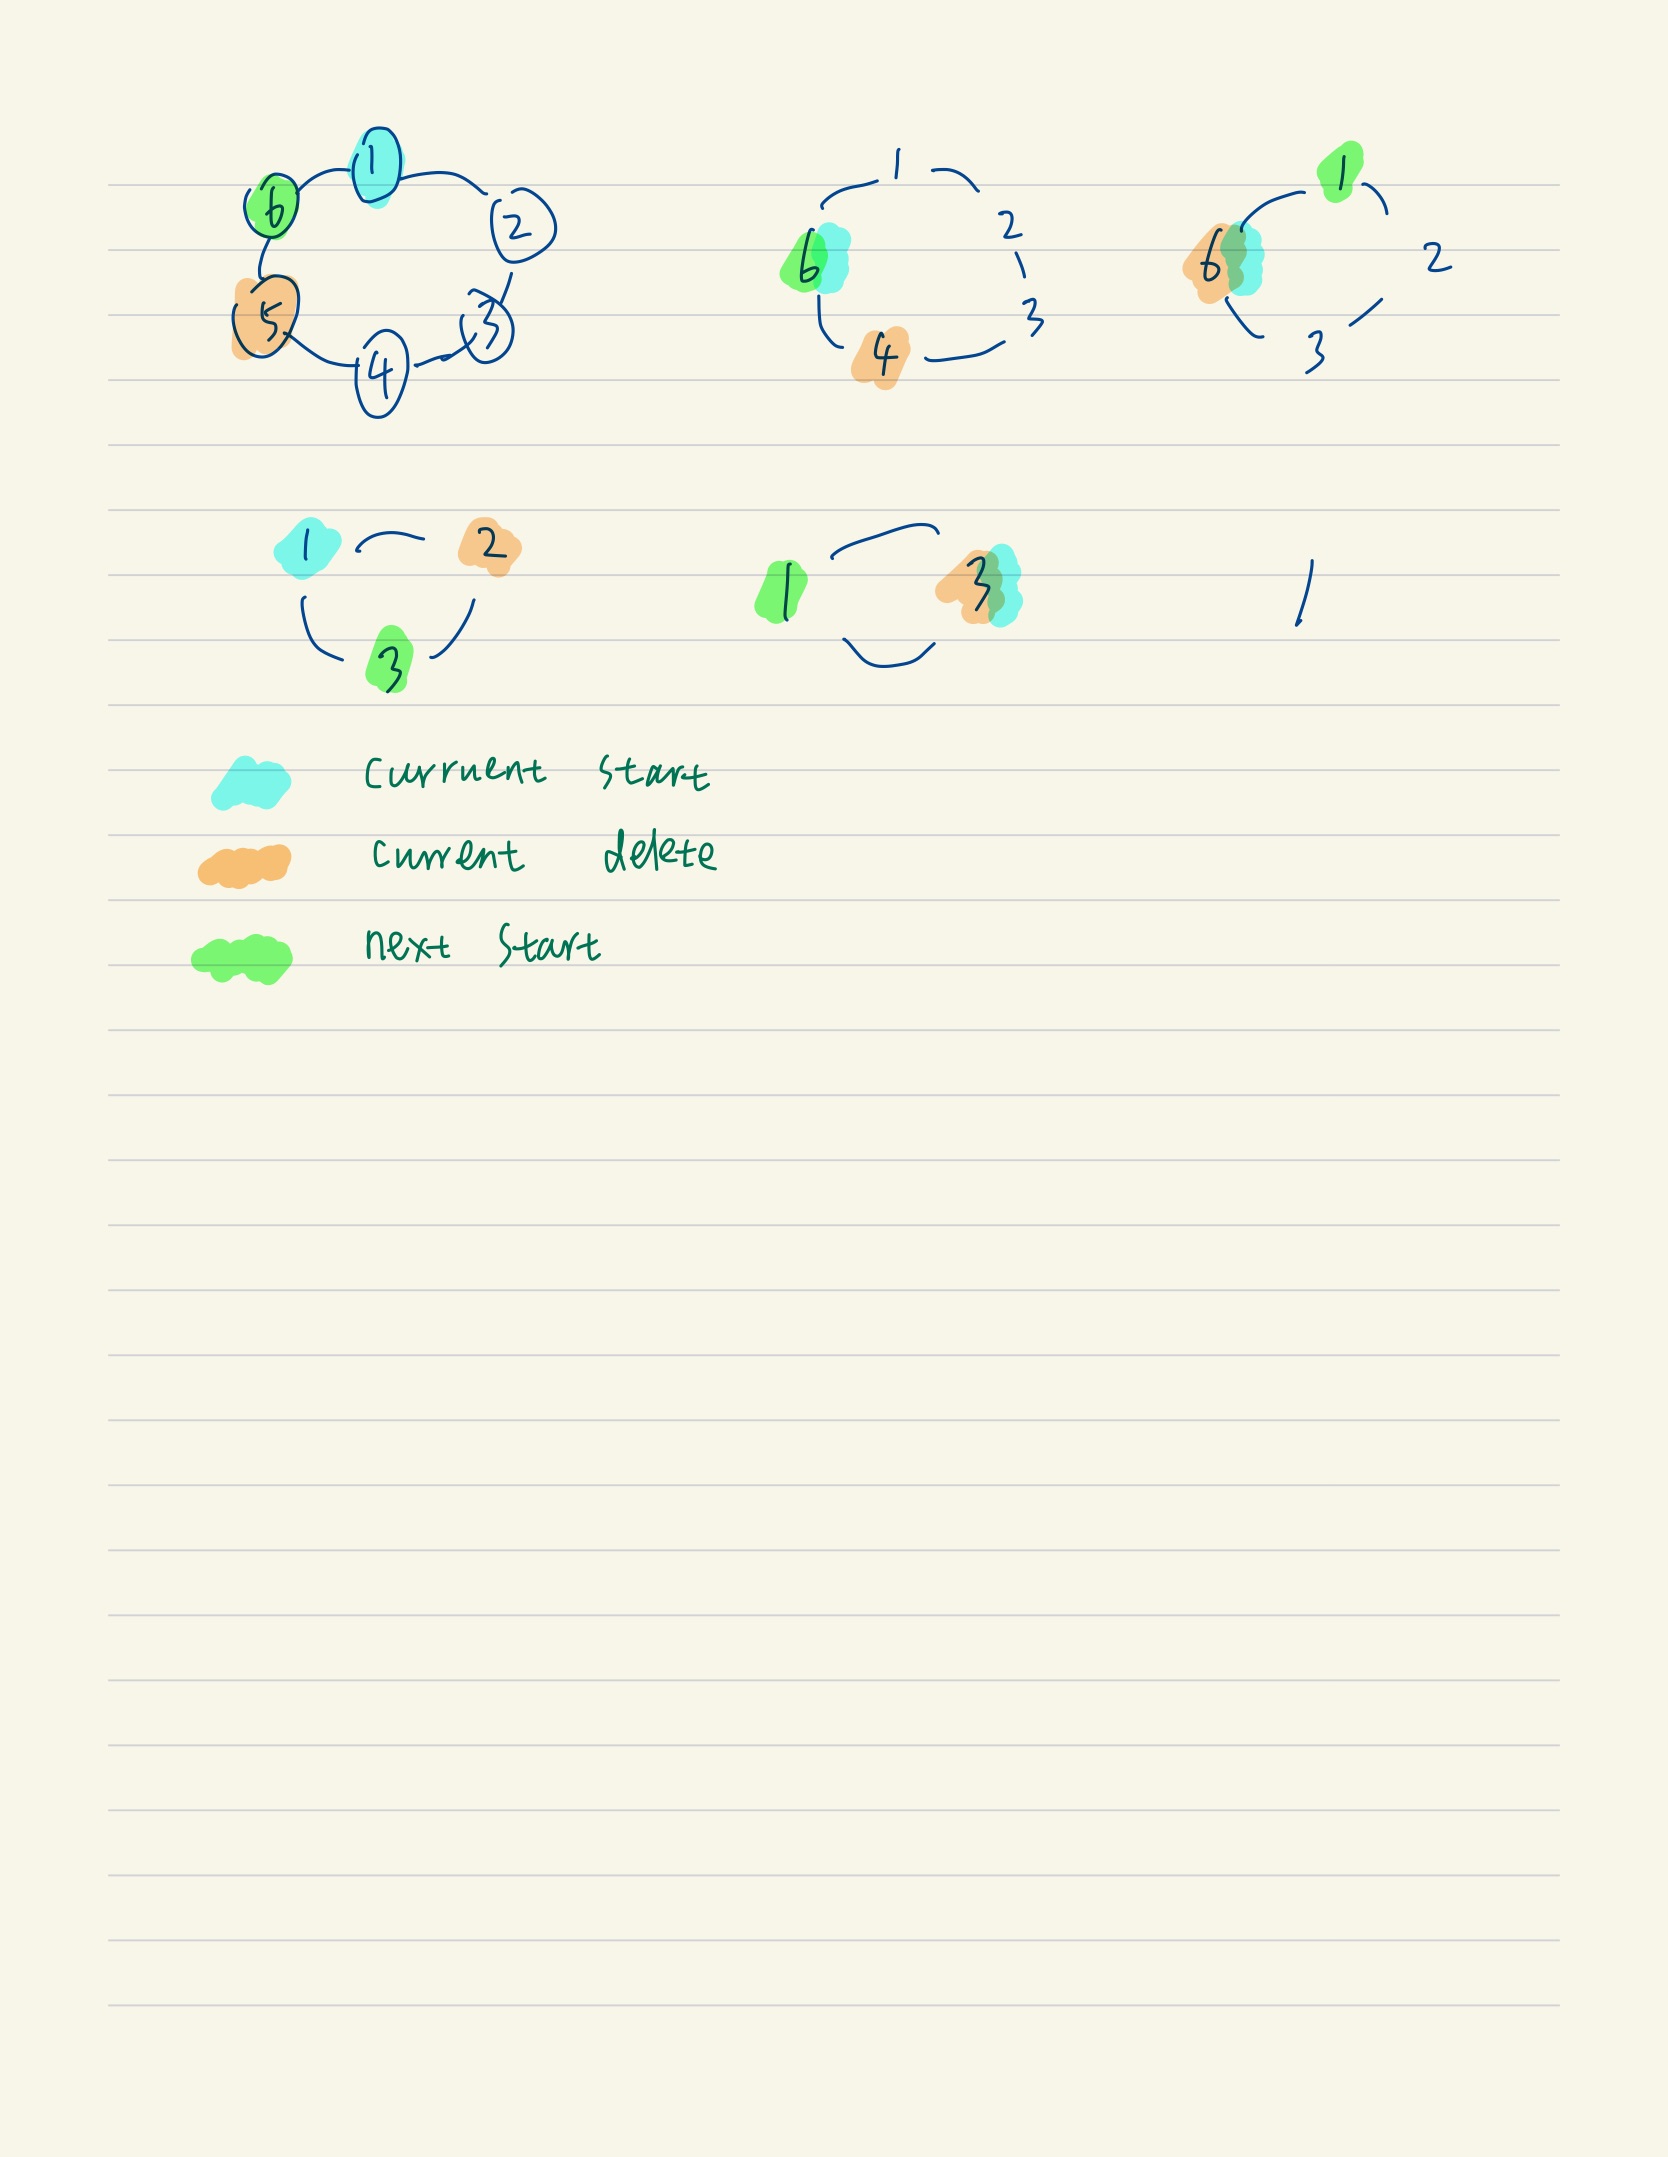 1
6
2
5
3
4
1
2
6
3
4
1
6
2
3
1 2
3
1 3
1
Currnent Start
Current delete
next Start